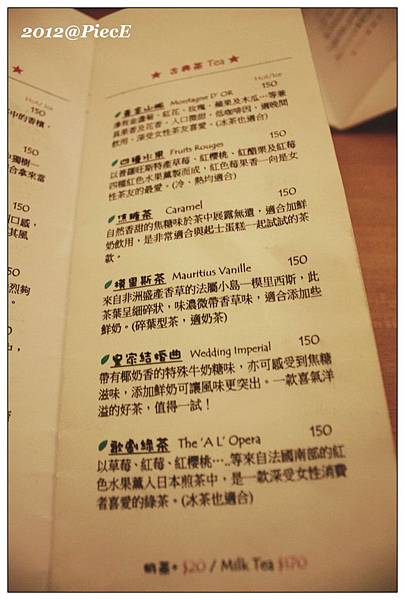 2012@PiecE
★ 古典茶 Tea ★
Hot/Ice
黃金山脈 Montagne D' OR 150
飲用、深受女性茶友喜愛。(冰茶也適合)
四種水果 Fruits Rouges 150
以普羅旺斯特產草莓、紅櫻桃、紅醋栗及紅莓
四種紅色水果薰製而成，紅色莓果香一向是女
性茶友的最愛。(冷、熱均適合)
焦糖茶 Caramel 150
自然香甜的焦糖味於茶中展露無遺，適合加鮮
奶飲用，是非常適合與起士蛋糕一起試試的茶
款。
模里斯茶 Mauritius Vanille 150
來自非洲盛產香草的法屬小島—模里西斯，此
茶葉呈細碎狀，味濃微帶香草味，適合添加些
鮮奶。(碎葉型茶，適奶茶)
皇家結婚曲 Wedding Imperial 150
帶有椰奶香的特殊牛奶糖味，亦可感受到焦糖
滋味，添加鮮奶可讓風味更突出。一款喜氣洋
溢的好茶，值得一試！
歌劇綠茶 The 'A L' Opera 150
以草莓、紅莓、紅櫻桃…..等來自法國南部的紅
色水果薰入日本煎茶中，是一款深受女性消費
者喜愛的綠茶。(冰茶也適合)
$20 / Milk Tea $170